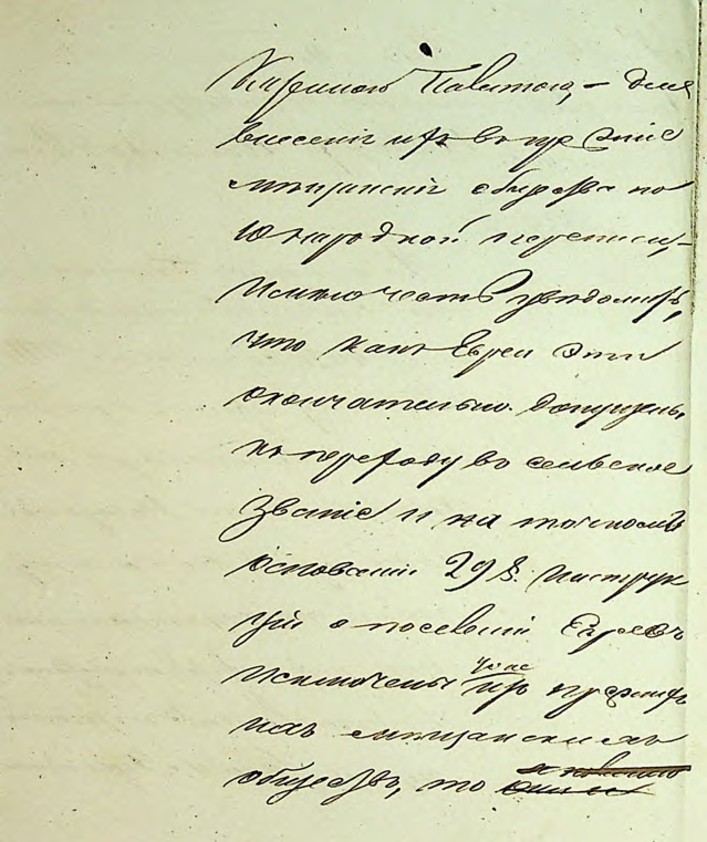 для
внесенія ихъ въ прежніе
мѣщанскія общества по
10 народной переписи,-
Имѣю честь увѣдомить,
что какъ Евреи эти
окончательно допущены
къ переходу въ сельское
званіе и на точномъ
основаніи 29 §. инструк
ціи о поселеніи Евреевъ
исключены уже изъ прежн
ихъ мѣщанскихъ
обществъ, то